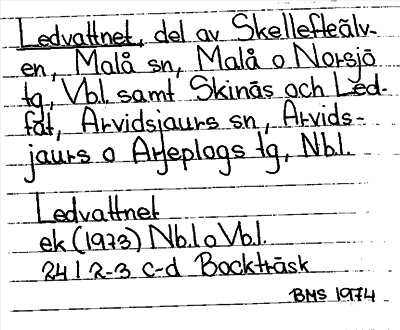 Ledvattnet, del av Skellefteälv-
en, Malå sn, Malå o Norsjö
tg, Vbl. samt Skinäs och Led-
fat, Arvidsjaurs sn, Arvids-
jaurs o Arjeplogs tg, Nbl.
Ledvattnet
ek (1973) Nb.l o Vb.l.
24 I 2-3 c-d Bockträsk
BMS 1974